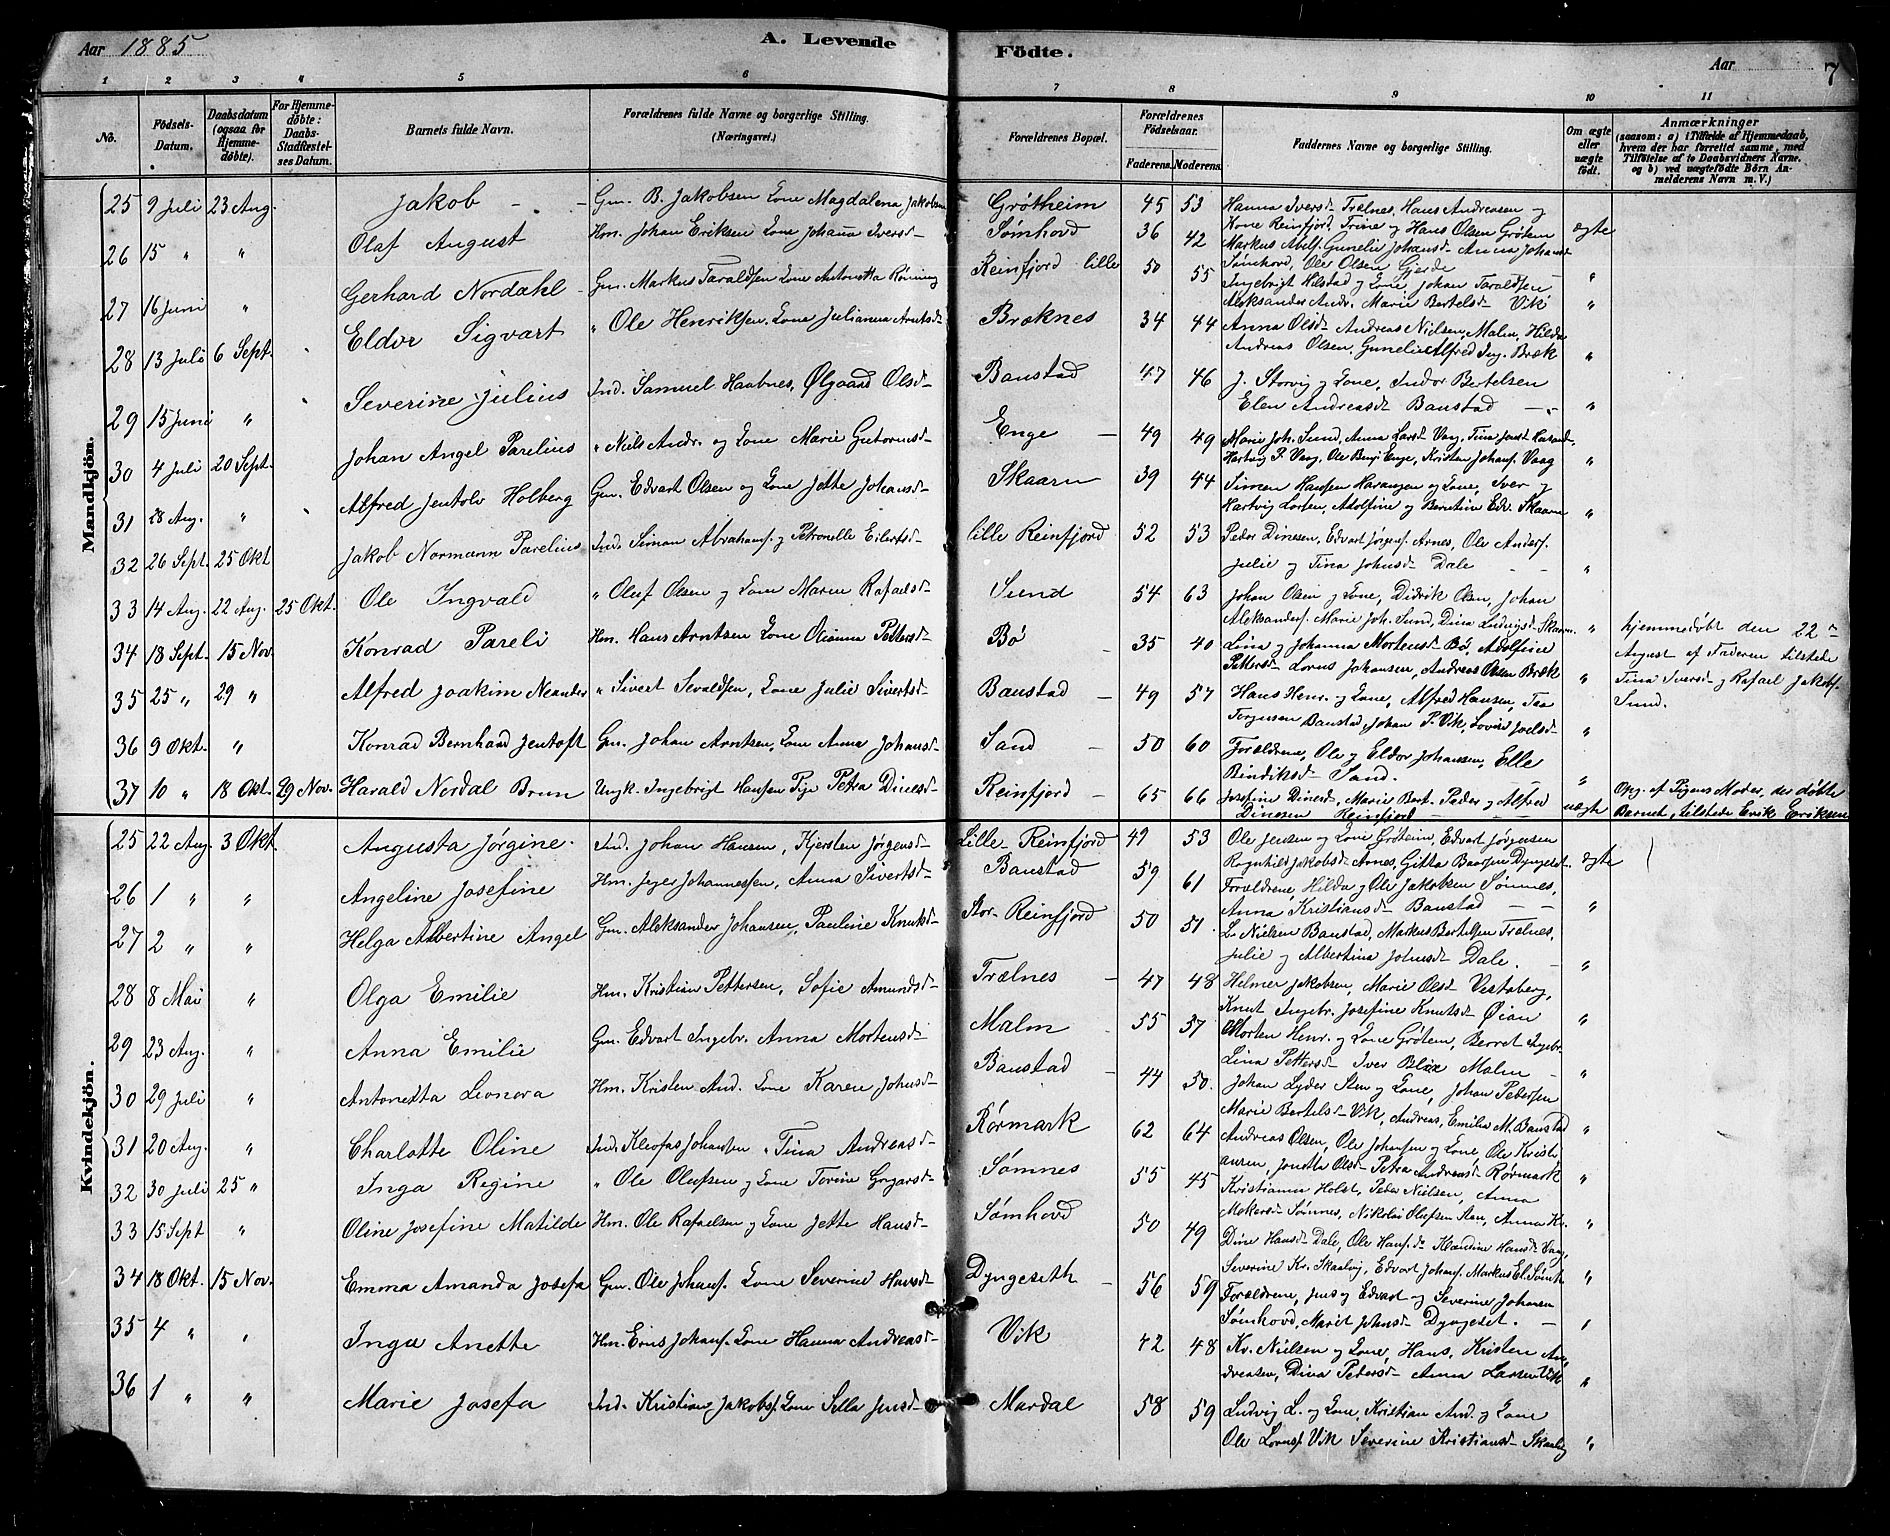 Aar 1885 A. Levende Födte. Aar 7
1 2 3 4 5 6 7 8 9 10 11
No. Födsels-Datum. Daabsdatum (ogsaa for Hjemmedøbte). For Hjemmedøbte: Daabs-Stadfæstelses Datum. Barnets fulde Navn. Forældrenes fulde Navne og borgerlige Stilling. (Næringsvei.) Forældrenes Bopæl. Forældrenes Födselsaar. Faderens. Moderens. Faddernes Navne og borgerlige Stilling. Om ægte eller uægte födt. Anmærkninger (saasom: a) i Tilfælde af Hjemmedaab, hvem der har forrettet samme, med Tilföielse af to Daabsvidners Navne. og b) ved uægtefödte Börn Anmelderens Navn m. V.)
Mandkjön.
25 9 Juli 23 Aug. Jakob Gm. B. Jakobsen Kone Magdalena Jakobsen Grötheim 45 53 Hanna Iversd. Trælnes, Hans Andreasen og Kone Reinfjord, Trine og Hans Olsen Gröten ægte
26 15 " " Olaf August Hm. Johan Eriksen Kone Johanna Iversd. Sömhovd 36 42 Markus Abelf. Gunelie Johansd. Anna Johansd. Sömhovd, Ole Olsen Gjerde "
27 16 Juni " Gerhard Nordahl Gm. Markus Taraldsen Kone Antonetta Röning Reinfjord lille 50 55 Ingebrigt Hilstad og Kone, Johan Taraldsen Aleksander Andr. Marie Bertelsd. Vik "
28 13 Juli 6 Sept. Eldor Sigvart " Ole Henriksen Kone Julianna Arntsd. Bræknes 34 44 Anna Olsd. Andreas Nielsen, Malm, Hilda Andreas Olsen, Gunelie Alfred Ing. Bræk "
29 15 Juni " Severine Julius Ind. Samuel Haabnes, Ølgaard Olsd. Baustad 47 46 J. Storvig og Kone, Indor Bertelsen Elen Andreasd. Baustad "
30 4 Juli 20 Sept. Johan Angel Parelius " Niels Andr. og Kone Marie Gutormsd. Enge 49 49 Marie Joh. Sund, Anna Larsd. Vaag, Tina Hartvig P. Vaag, Ole Benj. Enge, Kristen Johans. Vaag "
31 28 Aug. " Alfred Jentolv Holberg Gm. Edvart Olsen og Kone Jette Johansd. Skaarn 39 44 Simen Hansen Harangen og Kone, Iver og Hartvig Lorsen, Adolfine og Berntine Edv. Skaarn "
32 26 Sept. 25 Okt Jakob Normann Parelius Ind. Simon Abrahams. og Petronelle Eilertsd. lille Reinfjord 52 53 Peder Dinesen, Edvart Jörgens. Arnes, Ole Anders. Julie og Tina Johnsd. Dale "
33 14 Aug. 22 Aug. 25 Okt. Ole Ingvald " Oluf Olsen og Kone Maren Rafaelsd. Sund 54 63 Johan Olsen og Kone, Didrik Olsen, Johan Aleksanders. Marie Joh. Sund, Dina Ludvigsd. Skaarn. " hjemmedöbt den 22 August af Faderen tilstede Tina Iversd. og Rafael Jakobs. Sund.
34 18 Sept. 15 Nov. Konrad Pareli Hm. Hans Arntsen Kone Oleanna Pettersd. Bö 35 40 Lina og Johanna Mortensd. Bö, Adolfine Pettersd. Lorns Johansen, Andreas Olsen Bræk "
35 25 " 29 " Alfred Joakim Neander " Sivert Sevaldsen, Kone Julie Sivertsd. Baustad 49 57 Hans Henr. og Kone, Alfred Hansen, Baustad, Johan P. Vik, "
36 9 Okt. " Konrad Bernhard Jentoft Gm. Johan Arntsen, Kone Anna Johansd. Sand 50 60 Forældrene, Ole og Eldor Johansen, Elle Bendiksd. Sand. "
37 10 " 18 Okt. 29 Nov. Harald Nordal Brun Ungk. Ingebrigt Hansen Pige Petra Dinesd. Reinfjord 65 66 Josefine Dinesd., Marie Bert. Peder og Alfred Dinesen Reinfjord uægte Opg. af Pigens Moder, der döbte Barnet, tilstede Erik Eriksen
Kvindekjön.
25 22 Aug. 3 Okt. Augusta Jörgine. Ind. Johan Hansen, Kjersten Jörgensd. Lille Reinfjord 49 53 Ole Jensen og Kone Gröteim, Edvart Jörgensen Ragnhild Jakobsd. Arnes, Gitta Baarsen Dyngeset. ægte
26 1 " " Angeline Josefine Hm. Jeger Johannessen, Anna Sivertsd. Baustad 59 61 Forældrene, Hilda og Ole Jakobsen Sömnes, Anna Kristiansd. Baustad "
27 2 " " Helga Albertine Angel Gm. Aleksander Johansen, Pauline Knutsd. Stor-Reinfjord 50 51. L. Nielsen Baustad, Markus Bertelsen Trælnes, Julie og Albertina Johnsd. Dale. "
28 8 Mai " Olga Emilie Hm. Kristian Pettersen, Sofie Amundsd. Trælnes 47 48 Helmer Jakobsen, Marie Olsd. Vestaberg, Knut Ingebr. Josefine Knutsd. Öian "
29 23 Aug. " Anna Emilie Gm. Edvart Ingebr. Anna Mortensd. Malm 55 37 Morten Henr. og Kone Gröten, Berret Ingebr. Lina Pettersd. Iver Blix Malm "
30 29 Juli " Antonetta Leonora Hm. Kristen And. Kone Karen Johnsd. Baustad 44 50. Johan Lyder Sten og Kone, Johan Petersen Marie Bertelsd. Vik, Andreas, Emilie M. Baustad "
31 20 Aug. " Charlotte Oline Ind. Kleofas Johansen " Tina Andreasd. Rörmark 62 64 Andreas Olsen, Ole Johansen og Kone, Ole Kristiansen, Jonetta Olsd. Petra Andreasd. Rörmark "
32 30 Juli 25 " Inga Regine " Ole Olufsen og Kone Torine Gregarsd. Sömnes 55 45 Kristianna Holst, Peder Nielsen, Anna Sömnes, Nikolai Olufsen Sten, Anna Kr. "
33 15 Sept " Oline Josefine Matilde Hm. Ole Rafaelsen og Kone Jette Hansd. Sömhovd 50 49 Dine Hansd. Dale, Ole Hans. d. Klaudine Hansd. Vaag, Severine Kr. Skaalvig, Edvart Johans. Markus El. Sömh. "
34 18 Okt. 15 Nov. Emma Amanda Josefa Gm. Ole Johans. Kone Severine Hansd. Dyngeseth 56 59 Forældrene, Jens og Edvart og Severine Johansen Sömhovd, Marit Johnsd. Dyngeset. "
35 4 " " Inga Anette Hm. Ens Johans. Kone Hanna Andreasd. Vik 42 48 Kr. Nielsen og Kone, Hans, Kristen Andreasen, Dina Petersd. Anna Larsen Vik "
36 1 " " Marie Josefa Ind. Kristian Jakobs. Kone Silla Jensd. Mardal 58 59 Ludvig L. og Kone, Kristian And. og Kone Ole Lorns. Vik Severine Kristiansd. Skaalvig "